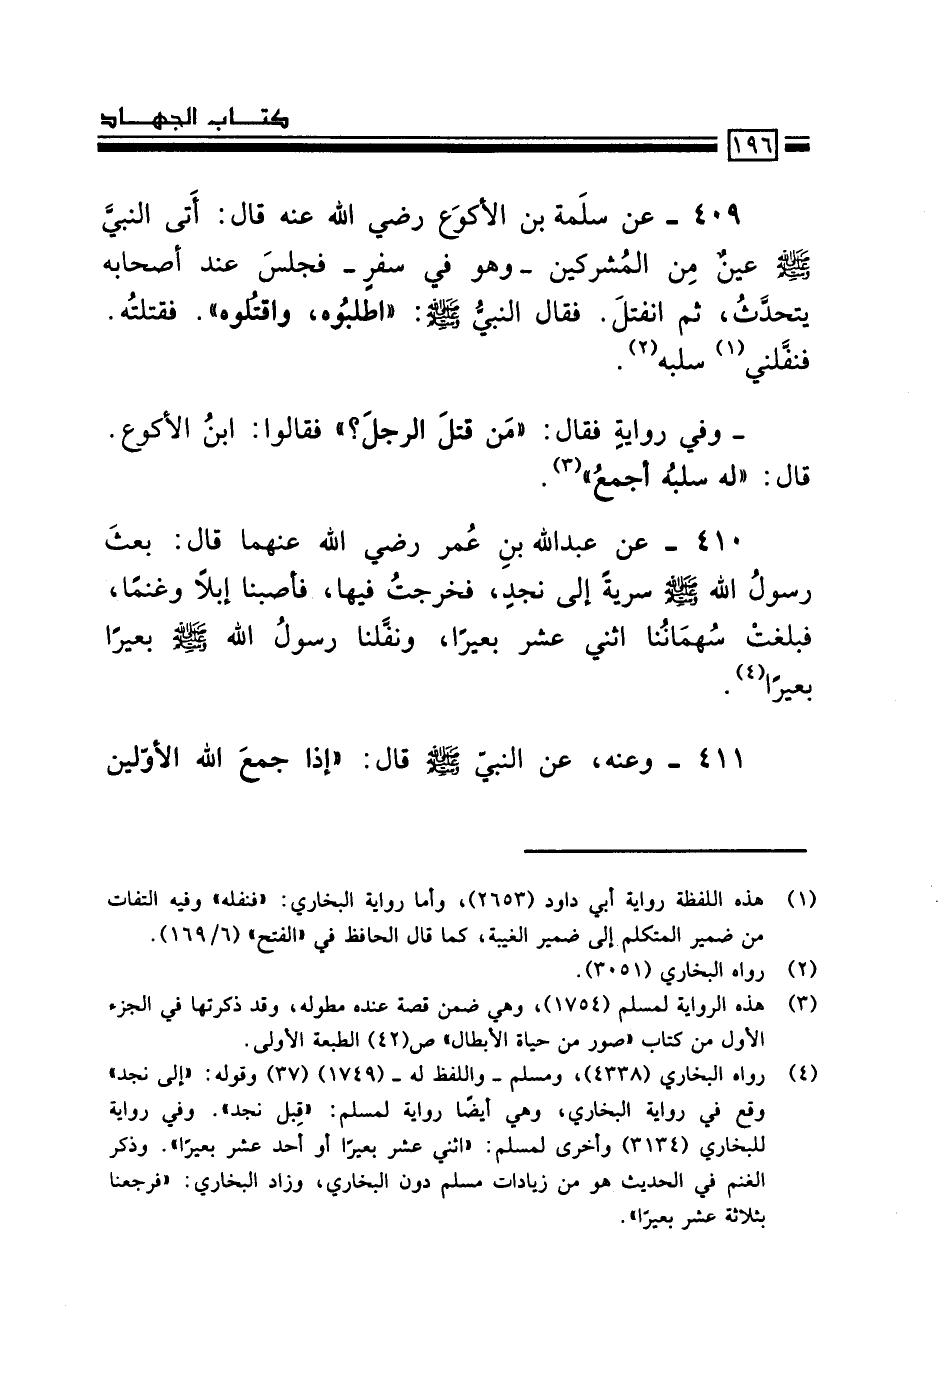 كتاب الجهاد
١٩٦
٤٠٩ ـ عن سلَمة بن الأكوَع رضي الله عنه قال: أَتى النبيَّ
ﷺ عينٌ مِن المُشركين ـ وهو في سفرٍ ـ فجلسَ عند أصحابه
يتحدَّثُ، ثم انفتلَ. فقال النبيُّ ﷺ: «اطلبُوه، واقتُلوه». فقتلتُه.
فنفَّلني(١) سلبه(٢).
ـ وفي روايةٍ فقال: «مَن قتلَ الرجلَ؟» فقالوا: ابنُ الأكوع.
قال: «له سلبُه أجمعُ»(٣).
٤١٠ ـ عن عبدالله بنِ عُمر رضي الله عنهما قال: بعثَ
رسولُ الله ﷺ سريةً إلى نجدٍ، فخرجتُ فيها، فأصبنا إبلاً وغنمًا،
فبلغتْ سُهمَانُنا اثني عشر بعيرًا، ونفَّلنا رسولُ الله ﷺ بعيرًا
بعيرًا(٤).
٤١١ ـ وعنه، عن النبيّ ﷺ قال: «إذا جمعَ الله الأوّلين
(١) هذه اللفظة رواية أبي داود (٢٦٥٣)، وأما رواية البخاري: «فنفله» وفيه التفات
من ضمير المتكلم إلى ضمير الغيبة، كما قال الحافظ في «الفتح» (٦/١٦٩).
(٢) رواه البخاري (٣٠٥١).
(٣) هذه الرواية لمسلم (١٧٥٤)، وهي ضمن قصة عنده مطوله، وقد ذكرتها في الجزء
الأول من كتاب «صور من حياة الأبطال» ص(٤٢) الطبعة الأولى.
(٤) رواه البخاري (٤٣٣٨)، ومسلم ـ واللفظ له ـ (١٧٤٩) (٣٧) وقوله: «إلى نجد»
وقع في رواية البخاري، وهي أيضًا رواية لمسلم: «قِبل نجد». وفي رواية
للبخاري (٣١٣٤) وأخرى لمسلم: «اثني عشر بعيرًا أو أحد عشر بعيرًا». وذكر
الغنم في الحديث هو من زيادات مسلم دون البخاري، وزاد البخاري: «فرجعنا
بثلاثة عشر بعيرًا».